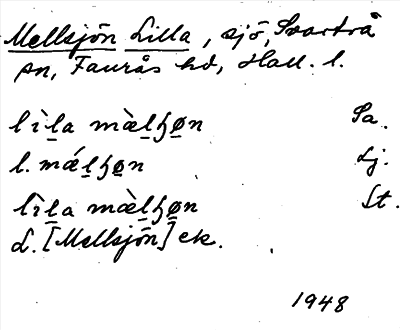 Mellsjön Lilla, sjö, Svartrå
sn, Faurås hd, Hall. l.
lìla mæ̀lɧøn Sa.
l. mǽlɧøn Lj.
lìla mæ̀lɧøn St.
L. [Mellsjön] ek.
1948